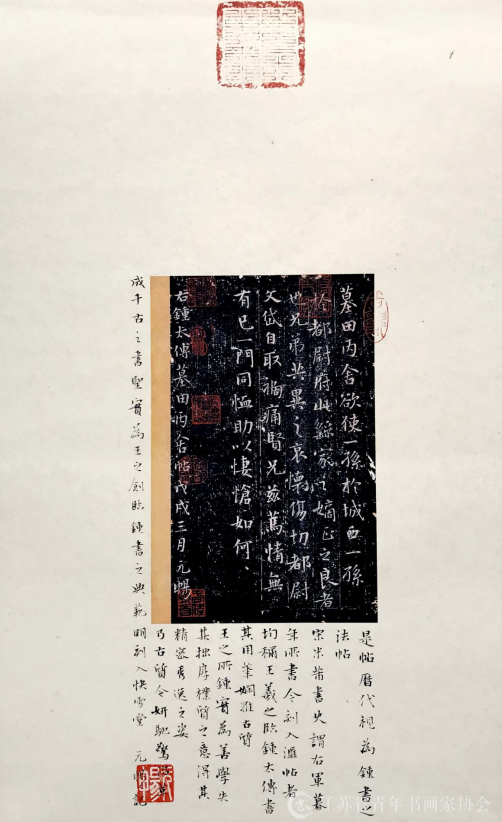 墓田丙舍欲使一孫於城西一孫
於都尉府此繇家之嫡正之良者
也兄弟共異之哀懷傷切都尉
文岱自取禍痛賢兄慈篤情無
有已一門同恤助以悽愴如何
右鍾太傅墓田丙舍帖戊戌三月元暢
是帖曆代視為鍾書之
法帖
宋米芾書史謂右軍暮
年所書今刻入滙帖者
均稱王羲之臨鍾太傅書
其用筆嫻雅古質
王之所鍾實為善學失
其拙厚樸質之意得其
精密秀逸之姿
乃古質今妍馳騖
成千古之書聖實為王之創臨鍾書之典範明刻入快雪堂 元暢記
江苏省青年书画家协会